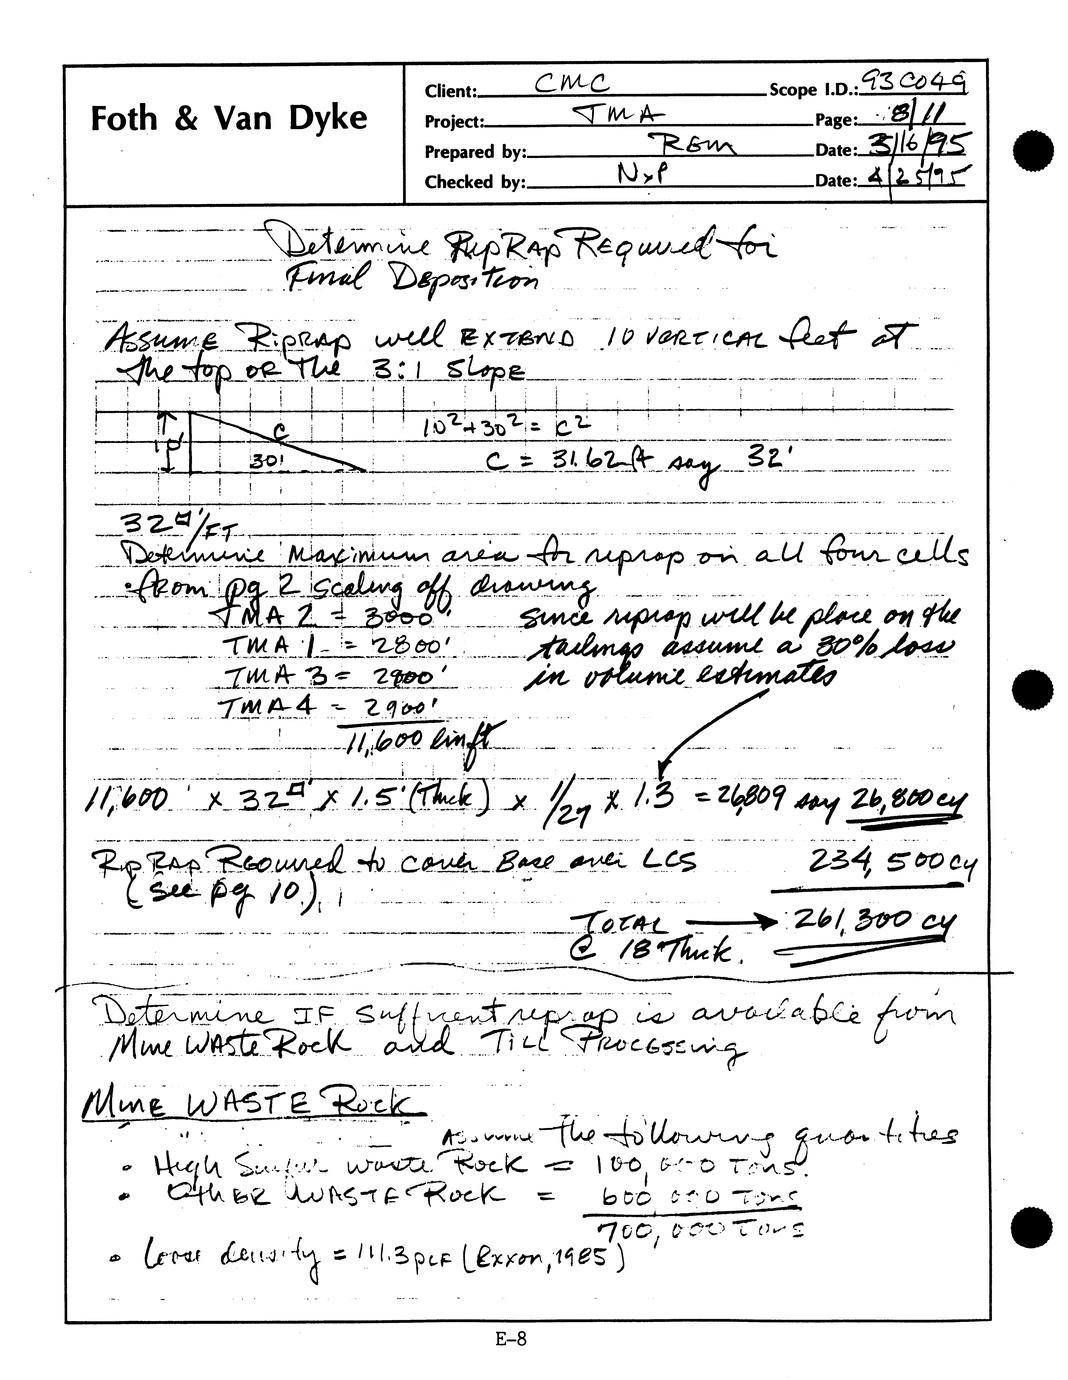 Foth & Van Dyke
Client: CMC Scope I.D.: 93C049
Project: TMA Page: 8/11
Prepared by: REM Date: 3/16/95
Checked by: NxP Date: 4/25/95
Determine RipRap Required for
Final Deposition
Assume Riprap will extend 10 vertical feet at
the top of the 3:1 slope
10' C 10² + 30² = C²
30' C = 31.62 ft say 32'
32 □'/FT
Determine maximum area for riprap on all four cells
from pg 2 scaling off drawing
TMA 2 = 3000' since riprap will be place on the
TMA 1 = 2800' tailings assume a 30% loss
TMA 3 = 2900' in volume estimates
TMA 4 = 2900'
11,600 lin ft
11,600' x 32 □' x 1.5' (Thick) x 1/27 x 1.3 = 26,809 say 26,800 cy
RipRap Required to cover Base over LCS 234,500 cy
(see pg 10) 
TOTAL → 261,300 cy
@ 18" Thick.
Determine IF sufficient riprap is available from
Mine Waste Rock and Till Processing
Mine WASTE Rock
Assume the following quantities
• High Sulfur waste Rock = 100,000 Tons.
• OTHER WASTE Rock = 600,000 Tons
700,000 Tons
• Loose density = 111.3 pcf (Exxon, 1985)
E-8